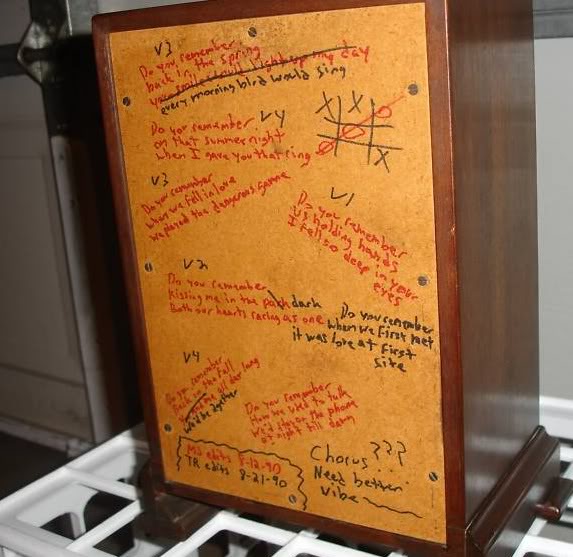 V3
Do you remember
back in the spring
your smile would light up my day
every morning bird would sing
V4
Do you remember
on that summer night
when I gave you that ring
X X O
O
O X
V3
Do you remember
when we fell in love
we played the dangerous game
V1
Do you remember
us holding hands
I fell so deep in your
eyes
V2
Do you remember
kissing me in the park dark
Both our hearts racing as one
Do you remember
when we first met
it was love at first
site
V4
Do you remember
back in the fall
all day long
we'd be together
Do you remember
how we used to talk
We'd stay on the phone
at night till dawn
MJ edits 8-12-90
TR edits 8-21-90
Chorus???
Need better
vibe